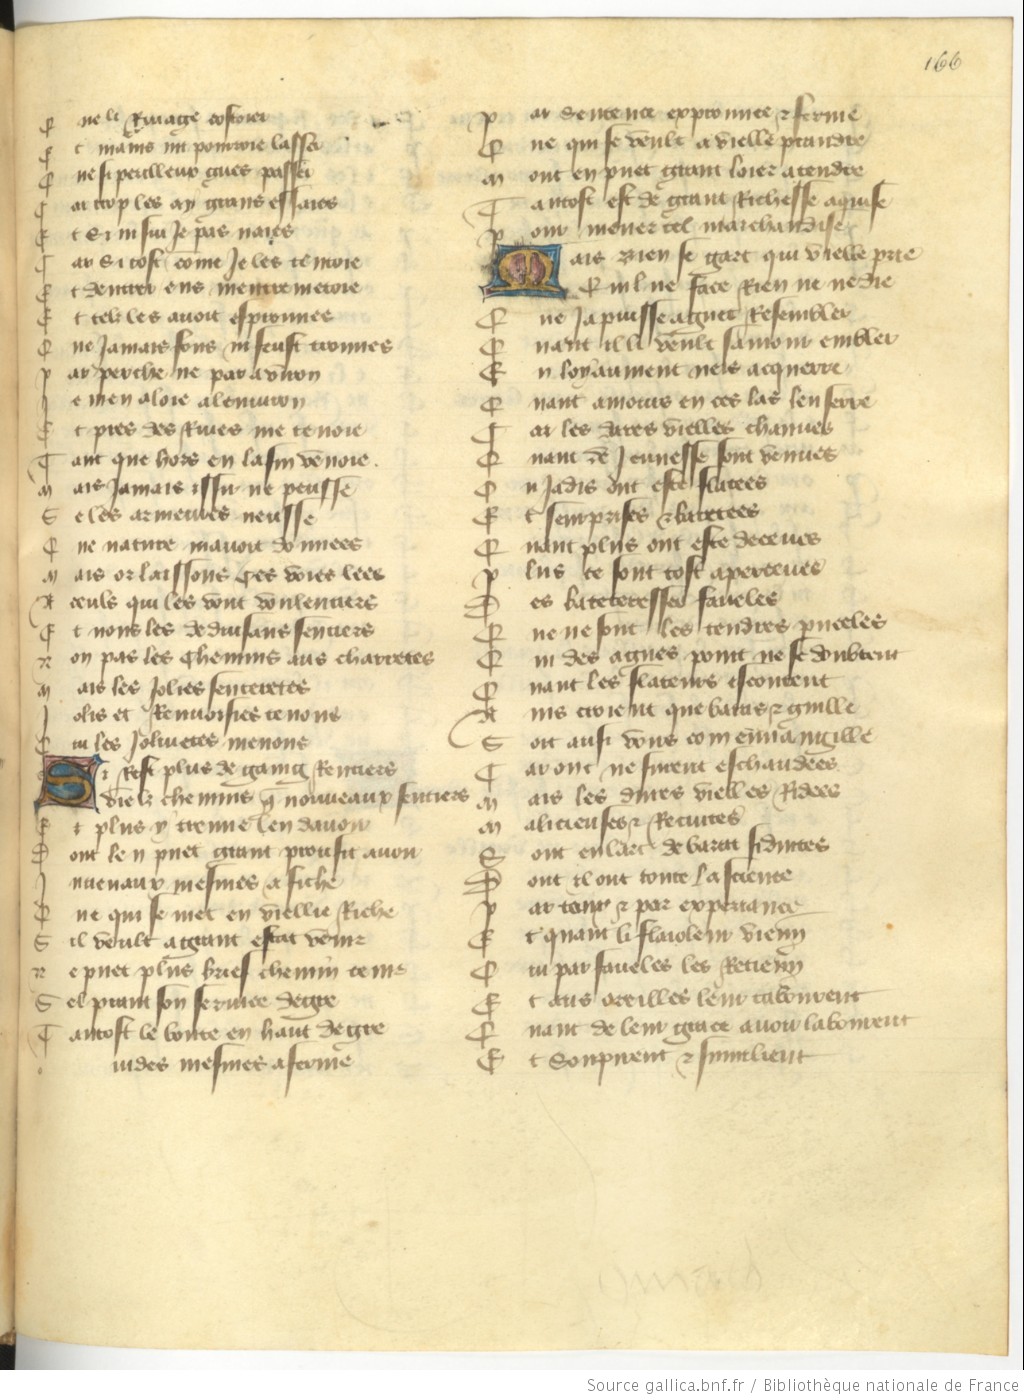 166
Q ne le Rivage costoier
E t mains mi pourroie lasser
Q ne si perilleux gues passer
C ar trop les ay grans essaies
E t Si m sui Je pas naies
C ar Si tost come Je les temoie
E t dentrer ens mentremetoie
E t telz les avoit esprouvees
Q ne Jamais fons ni feust trouvees
P ar perche ne par aviron
J e men aloie alenuiron
E t pres des Rives me tenoie
T ant que hors en la fin venoie.
M ais Jamais issir ne peusse
S e les armeures neusse
Q ne nature mavoit donnees
M ais or laissons ces voies lees
A ceuls qui les vont voulentiers
E t nous les deduisans sentiers
N on pas les chemins aus charretes
M ais les Jolies senteretes
J olis et Renvoisies tenons
Q ui les Jolivetes menons
S i Rest plus de gaaig Rentiers
Vielz chemins q nouveaux sentiers
E t plus y trenne len davoir
D ont len puet grant proufit avoir
J uvenaux mesmes afiche
Q ne qui se met en viellie Riche
S il veult a grant estat venir
N e puet plus brief chemin tenir
S el prant son service degre
T antost le boute en haut degre
uides mesmes aferme
P ar Sentence esprouvee z ferme
Q ne qui se veult a vielle prandre
M ont en puet grant loier atendre
T antost est de grant Richesse aquise
P our mener tel marchandise
M ais Bien se gart qui vielle prie
Q uil ne face Rien ne ne die
Q ne Ja puisse aguet Resembler
Q uant il li veult samour embler
E n loyaument neis acquerre
Q uant amours en ces las len serre
C ar les dures vielles chanues
Q uant de Jeunesse sont venues
O u Jadis ont este flatees
E t seurprises z baretees
Q uant plus ont este deceues
P lus ce sont tost aperceues
D es bareteresses faveles
Q ne ne sont les tendres puceles
Q ui des agues point ne se doubtent
Q uant les flateurs escoutent
A ins croient que baras z guille
S oit ausi vous com euuangille
C ar onc ne furent eschaudees
M ais les dures vielles Ridees
M alicieuses z Recuites
S ont en lart de barat si duites
D ont il ont toute la science
P ar temps z par experiance
E t quant li flaioleur vienn
Q ui par faveles les Retienn
E t aus oreilles leur tabourent
Q uant de leur grace avoir labourent
E t Souprient z sumelient
Source gallica.bnf.fr / Bibliothèque nationale de France